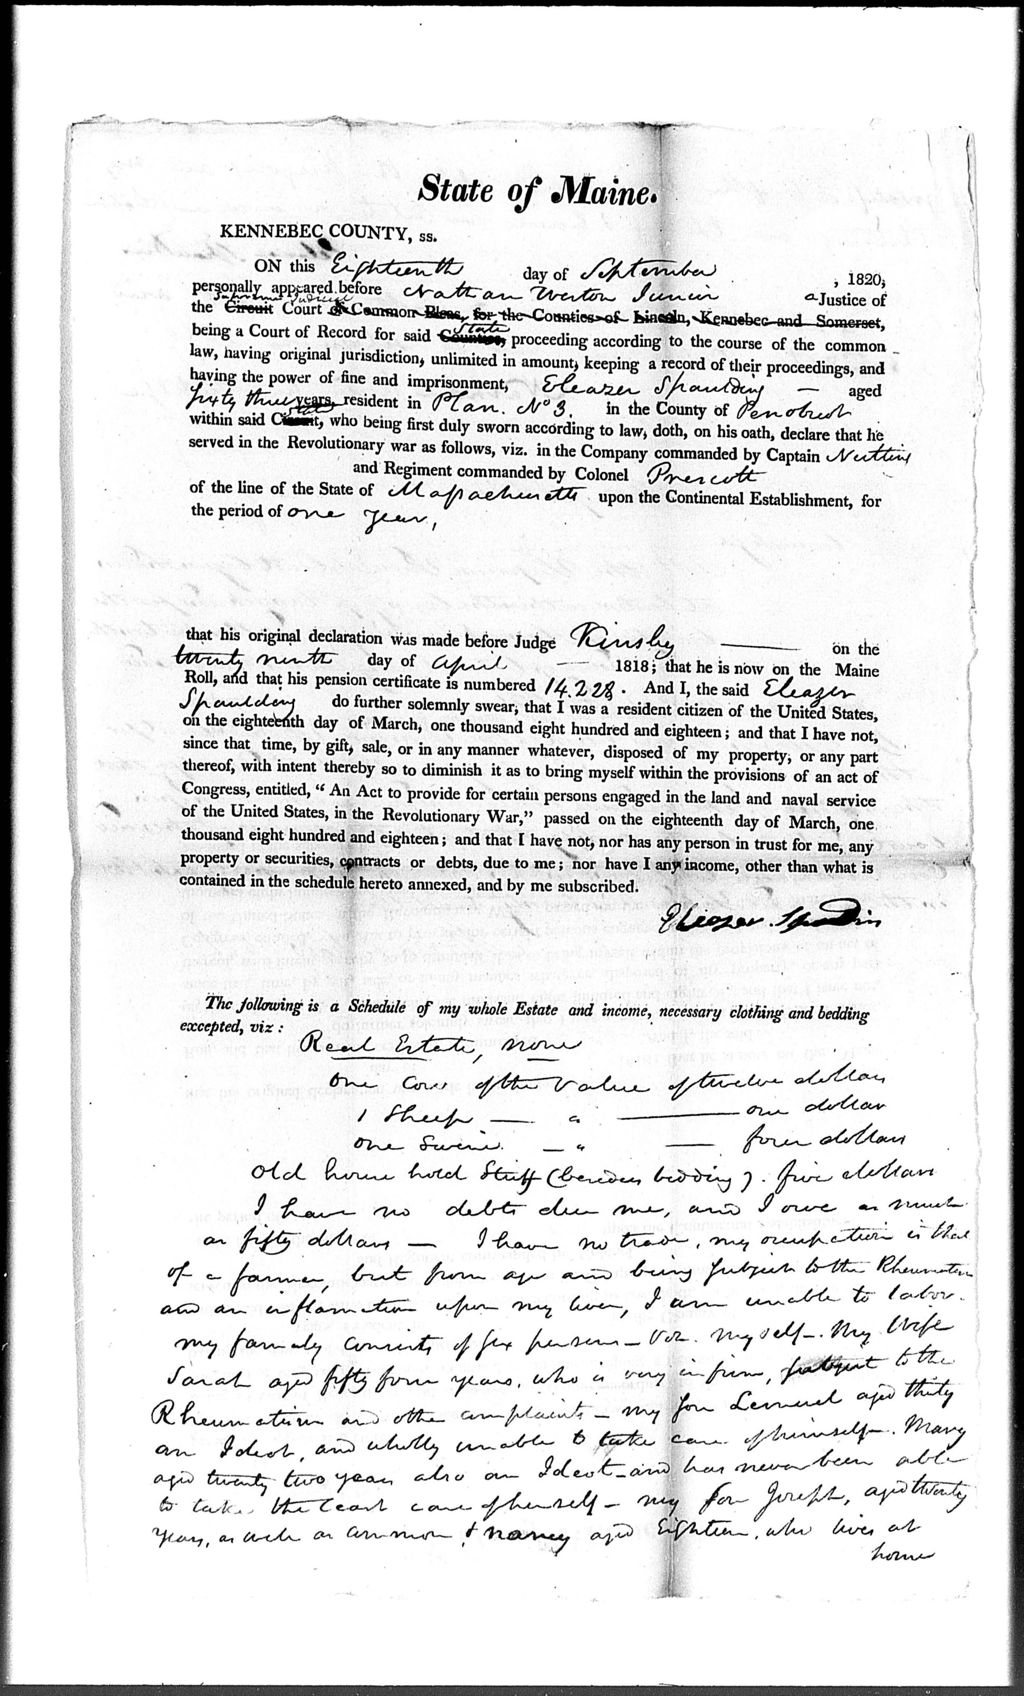 State of Maine.
KENNEBEC COUNTY, ss.
ON this Eighteenth day of September , 1820,
personally appeared before Nathan Weston Junior a Justice of
Supreme Judicial
the Circuit Court of Common Pleas, for the Counties of Lincoln, Kennebec and Somerset,
State
being a Court of Record for said Counties, proceeding according to the course of the common
law, having original jurisdiction, unlimited in amount, keeping a record of their proceedings, and
having the power of fine and imprisonment, Eleazer Spaulding — aged
sixty three years, resident in Plan. No 3. in the County of Penobscot
State
within said Circuit, who being first duly sworn according to law, doth, on his oath, declare that he
served in the Revolutionary war as follows, viz. in the Company commanded by Captain Nutting
and Regiment commanded by Colonel Prescott
of the line of the State of Massachusetts upon the Continental Establishment, for
the period of one year,
that his original declaration was made before Judge Kinsley —— on the
twenty ninth day of April — 1818; that he is now on the Maine
Roll, and that his pension certificate is numbered 14.228. And I, the said Eleazer
Spaulding do further solemnly swear, that I was a resident citizen of the United States,
on the eighteenth day of March, one thousand eight hundred and eighteen; and that I have not,
since that time, by gift, sale, or in any manner whatever, disposed of my property, or any part
thereof, with intent thereby so to diminish it as to bring myself within the provisions of an act of
Congress, entitled, “ An Act to provide for certain persons engaged in the land and naval service
of the United States, in the Revolutionary War,” passed on the eighteenth day of March, one
thousand eight hundred and eighteen; and that I have not, nor has any person in trust for me, any
property or securities, contracts or debts, due to me; nor have I any income, other than what is
contained in the schedule hereto annexed, and by me subscribed.
Eleazer Spaldin
The following is a Schedule of my whole Estate and income, necessary clothing and bedding
excepted, viz :
Real Estate, none
One Cow of the Value of twelve dollars
1 Sheep — " —— one dollar
one Swine. — " — four dollars
Old house hold Stuff (besides bedding). five dollars
I have no debts due me, and I owe as much
as fifty dollars — I have no trade, my occupation is that
of a farmer, but from age and being subject to the Rheumatism
and an inflamation upon my liver, I am unable to labor.
my family consists of six persons — viz. myself — My Wife
Sarah aged fifty four years, who is very infirm, subject to the
Rheumatism and other complaints — my son Lemuel aged thirty
an Ideot, and wholly unable to take care of himself — Mary
aged twenty two years also an Ideot — and has never been able
to take the least care of herself — my son Joseph, aged twenty
years, as well as common & Nancy aged Eighteen, who lives at
home